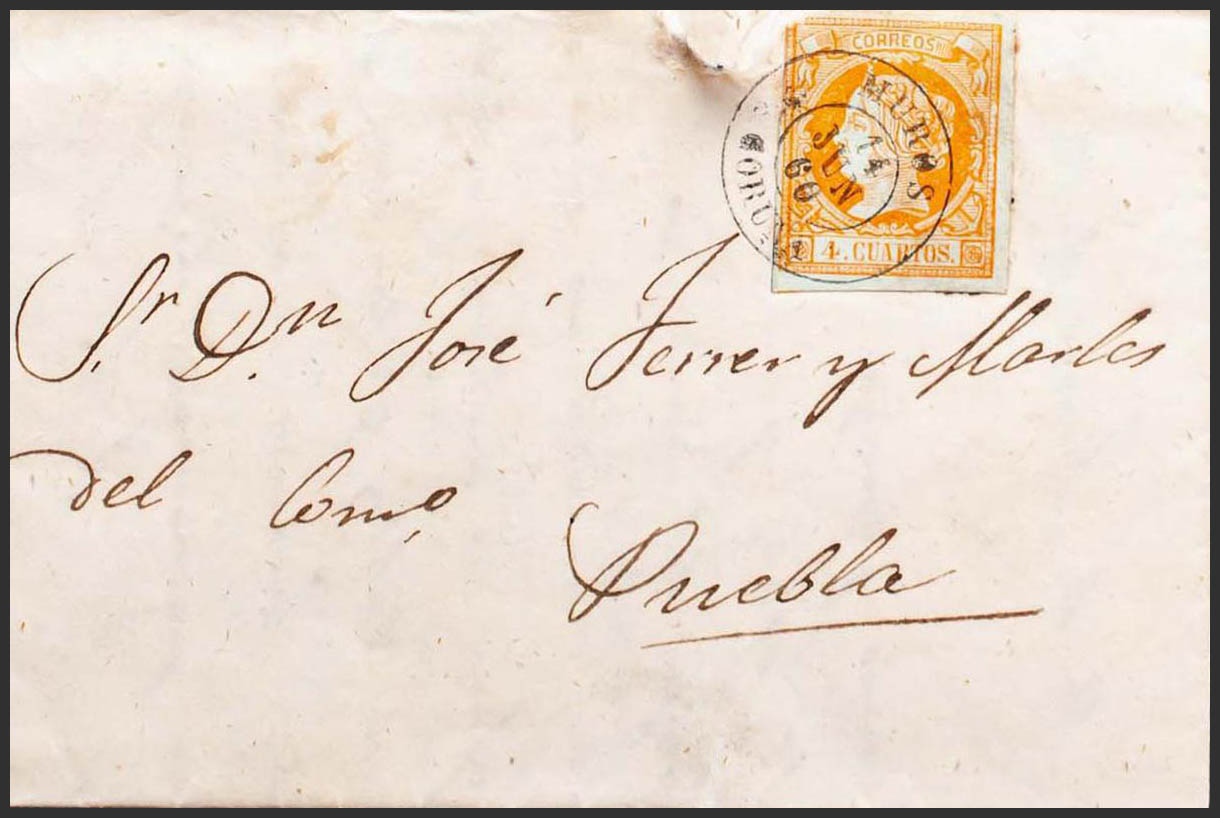 CORREOS
MUROS
14
JUN
60
CORUÑA
4. CUARTOS.
Sr. Dn. José Ferrer y Marles
del Como.
Puebla